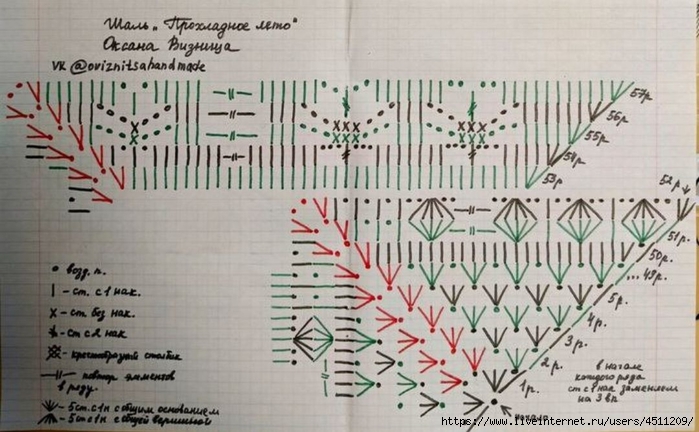 Шаль „Прохладное лето"
Оксана Визница
VK @oviznitsahandmade
57р.
56р.
55р.
54р.
53р.
52р.
51р.
50р.
...49р.
5р.
4р.
3р.
2р.
1р.
начало
в начале
каждого ряда
ст с1нак заменяем
на 3 вп
• возд. п.
| - ст. с 1 нак.
х - ст. без нак.
- ст с 2 нак
- крестообразный столбик
-//- - повтор элементов
в ряду
- 5 ст. с 1н с общим основанием
- 5 ст с 1н с общей вершиной
https://www.liveinternet.ru/users/4511209/